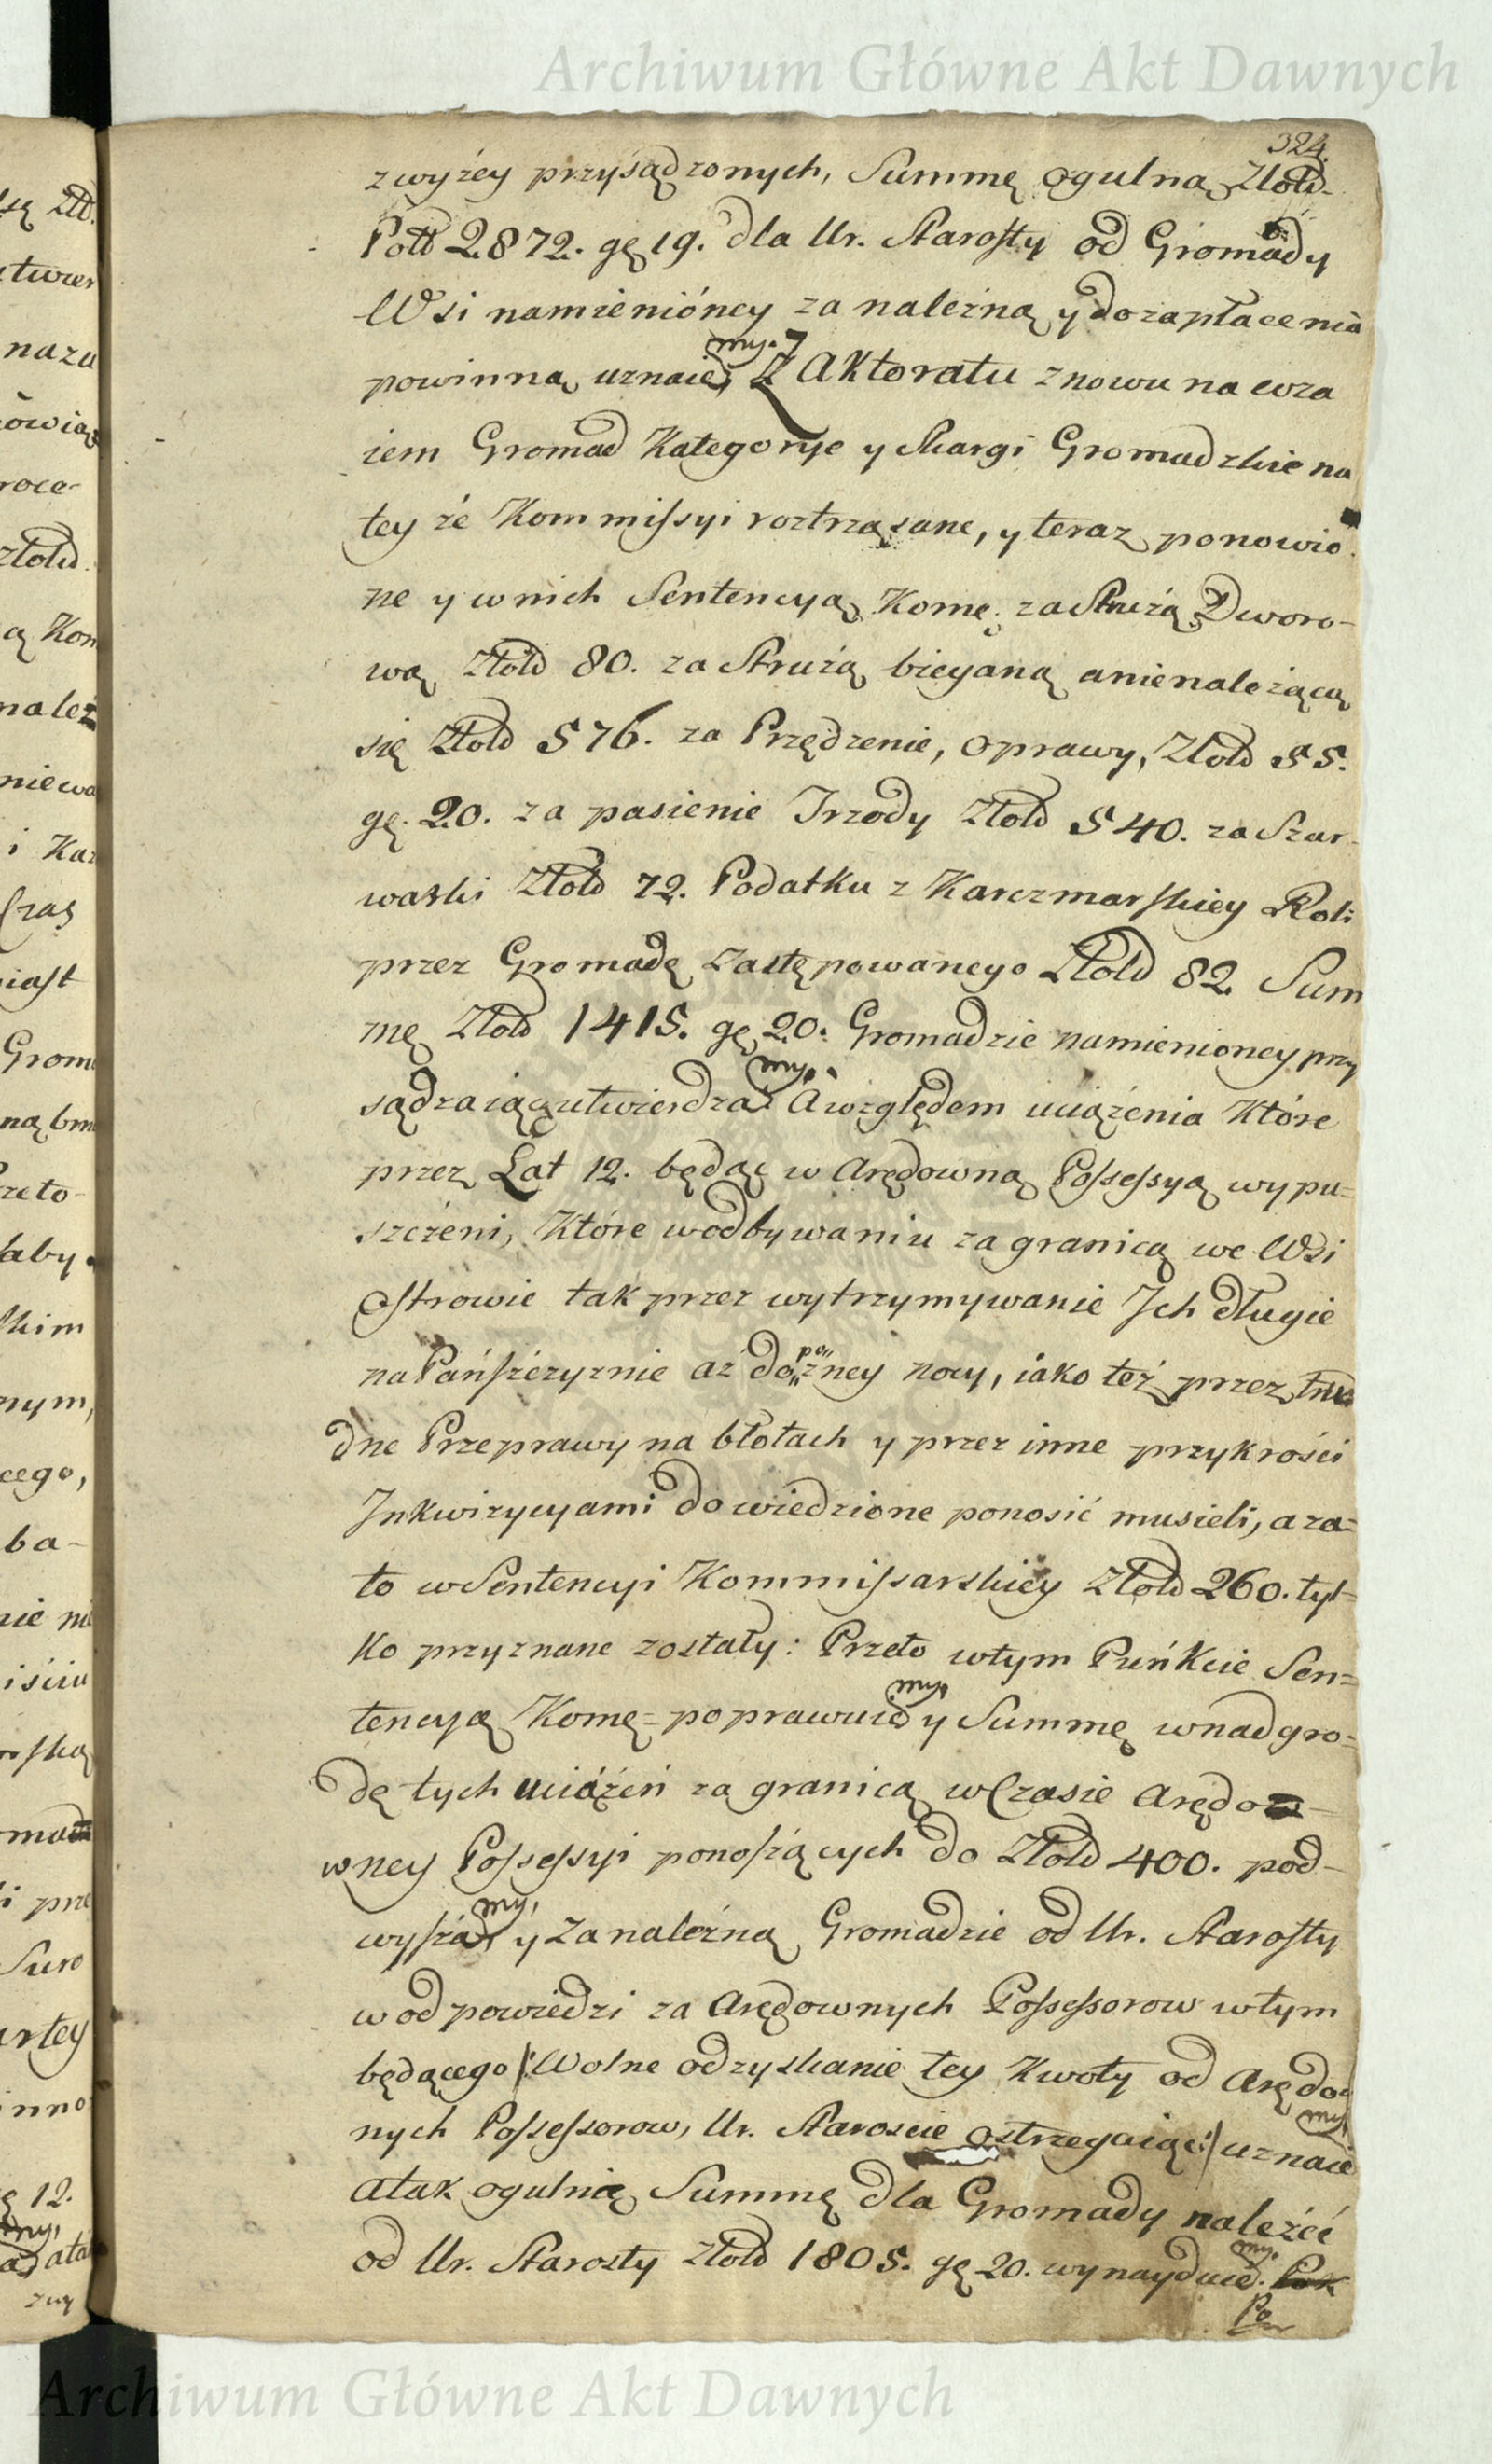 Archiwum Główne Akt Dawnych
324.
zwyżey przysądzonych, Summę ogulną Złołd
Poltt 2872. gę 19. dla Ur. Starosty od Gromady
Wsi namienióney za należną y do zapłacenia
powinną uznaie my. Z Aktoratu znowu na wza
iem Gromad Kategorye y Skargi Gromadzkie na
tey że Kommissyi roztrząsane, y teraz ponowio
ne y w nich Sentencyą Komę: za Stużą Dworo-
wą Złołd 80. za Strużą bieyaną a nie należącą
się Złołd 576. za Przędzenie, Oprawy, Złołd 55.
gę. 20. za pasienie Trzody Złołd 540. za Szar
warki Złołd 72. Podatku z Karczmarskiey Roli
przez Gromadę Zastępowanego Złołd 82. Sum
mę Złołd 1415. gę 20. Gromadzie namienioney przy
sądzaiącą utwierdza my. A względem uciążenia Które
przez Lat 12. będąc w Arędowną Possessyą wypu=
szczeni, Które w odbywaniu za granicą we Wsi
Ostrowie tak przez wytrzymywanie Ich długie
na Pańszczyznie aż do poźney nocy, iako też przez tru
dne Przeprawy na błotach y przez inne przykrości
Inkwizycyami dowiedzione ponosić musieli, a za=
to w Sentencyi Kommissarskiey Złołd 260. tyl=
ko przyznane zostały: Przeto w tym Puńkcie Sen=
tencyą Komę= poprawuie my. y Summę w nadgro=
dę tych uciążeń za granicą w Czasie Arędow-
wney Possessyi ponoszących do Złołd 400. pod-
wyższa my, y za należną Gromadzie od Ur. Starosty
w odpowiedzi za Arędownych Possessorow w tym
będącego /: Wolne odzyskanie tey Kwoty od Arędo=
nych Possessorow, Ur. Staroscie ostrzegaiąc :/ uznaie my,
a tak ogulnią Summę dla Gromady należeć
od Ur. Starosty Złołd 1805. gę 20. wynayduie my.
Po
Archiwum Główne Akt Dawnych